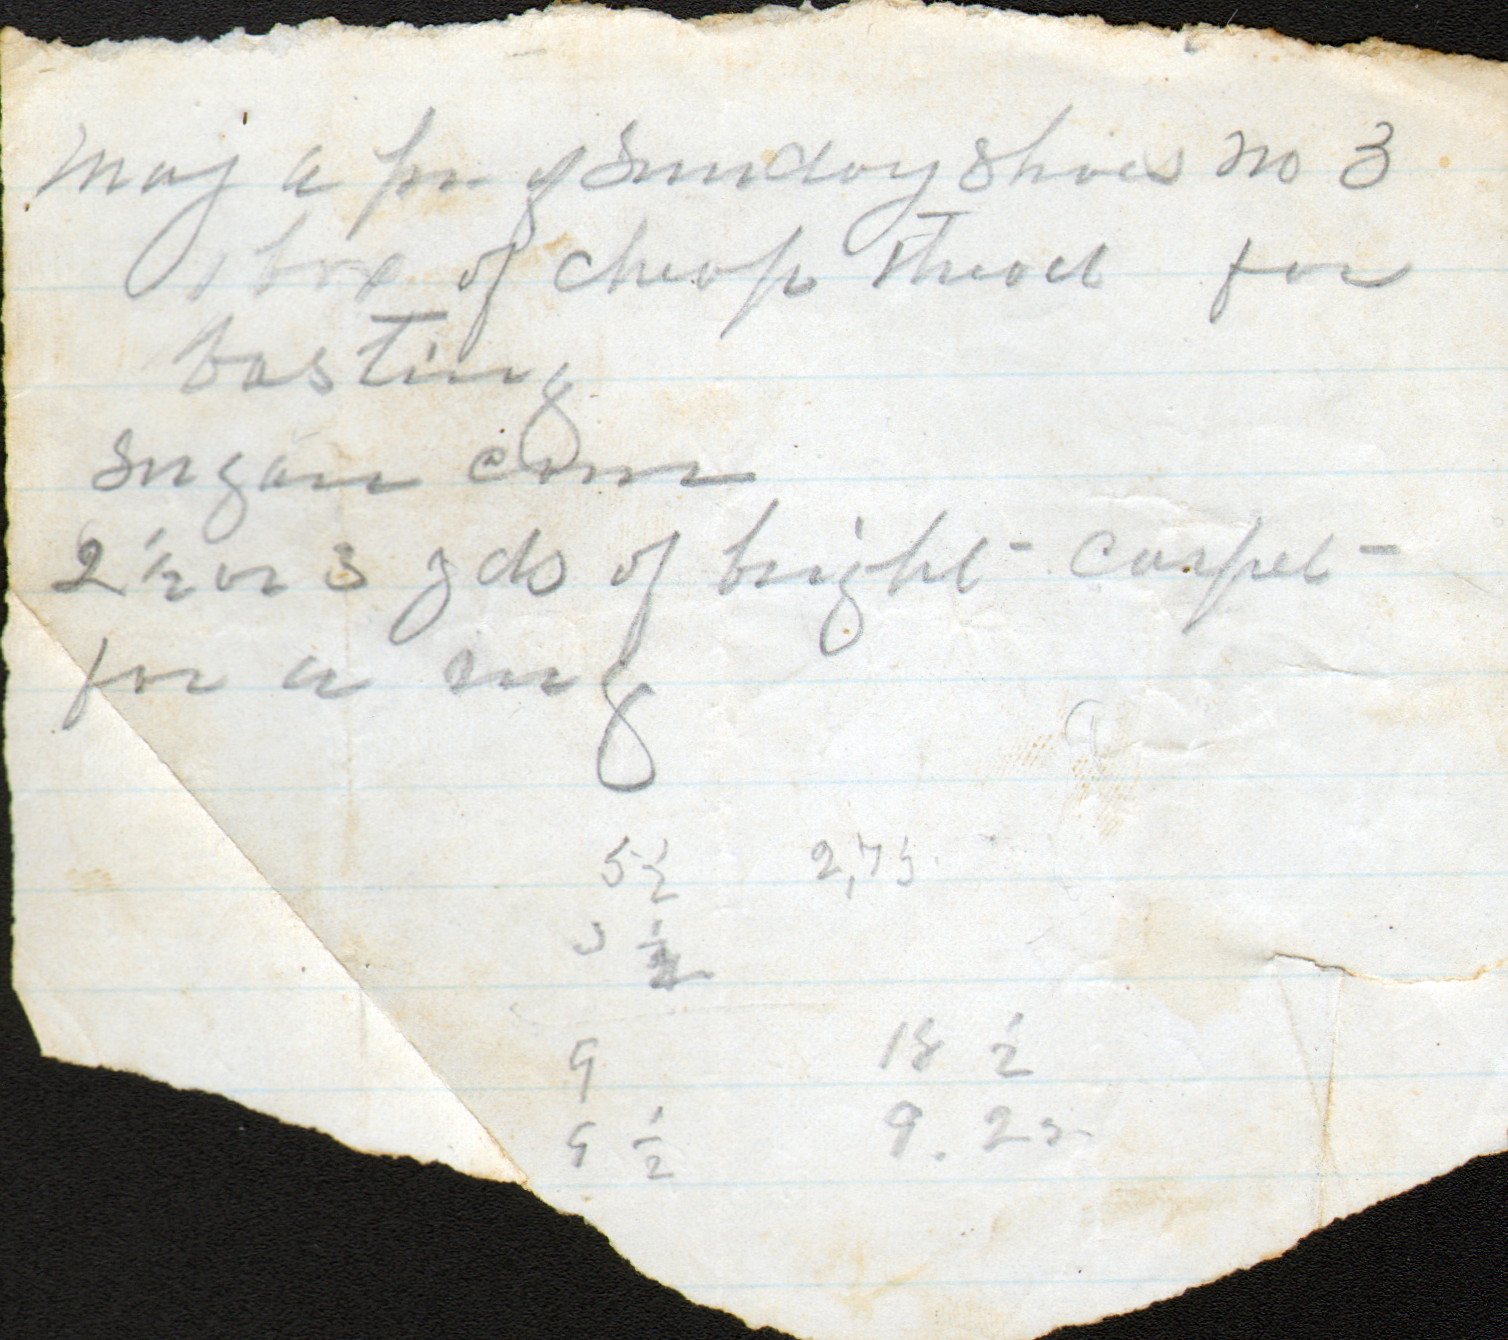 May a pr of Sunday Shoes No 3
1 box of cheap thread for
basting
Sugar corn
2 1/2 or 3 yds of bright carpet
for a rug
5 1/2 2,75
3 1/2
9 18 1/2
9 1/2 9.25